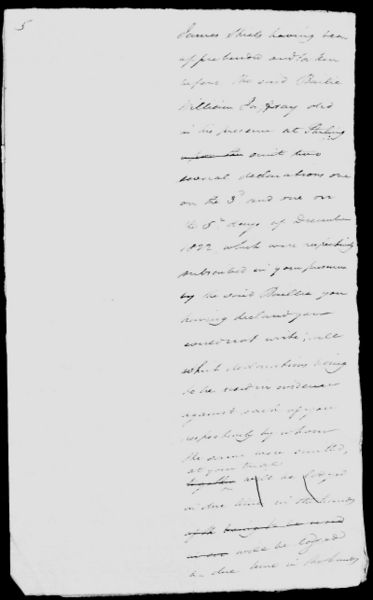 5
James Shiels having been
apprehended and taken
before the said Bailie
William Jaffray did
in his presence at Stirling
emit two
several declarations one
on the 3d and one on
the 5th days of December
1822 which were respectively
subscribed in your presence
by the said Bailie you
having declared you
could not write; all
which declarations being
to be used in evidence
against each of you
respectively by whom
the same were emitted,
at your trial
together will be lodged
in due time in the hands
of the
will be lodged
in due time in the hands